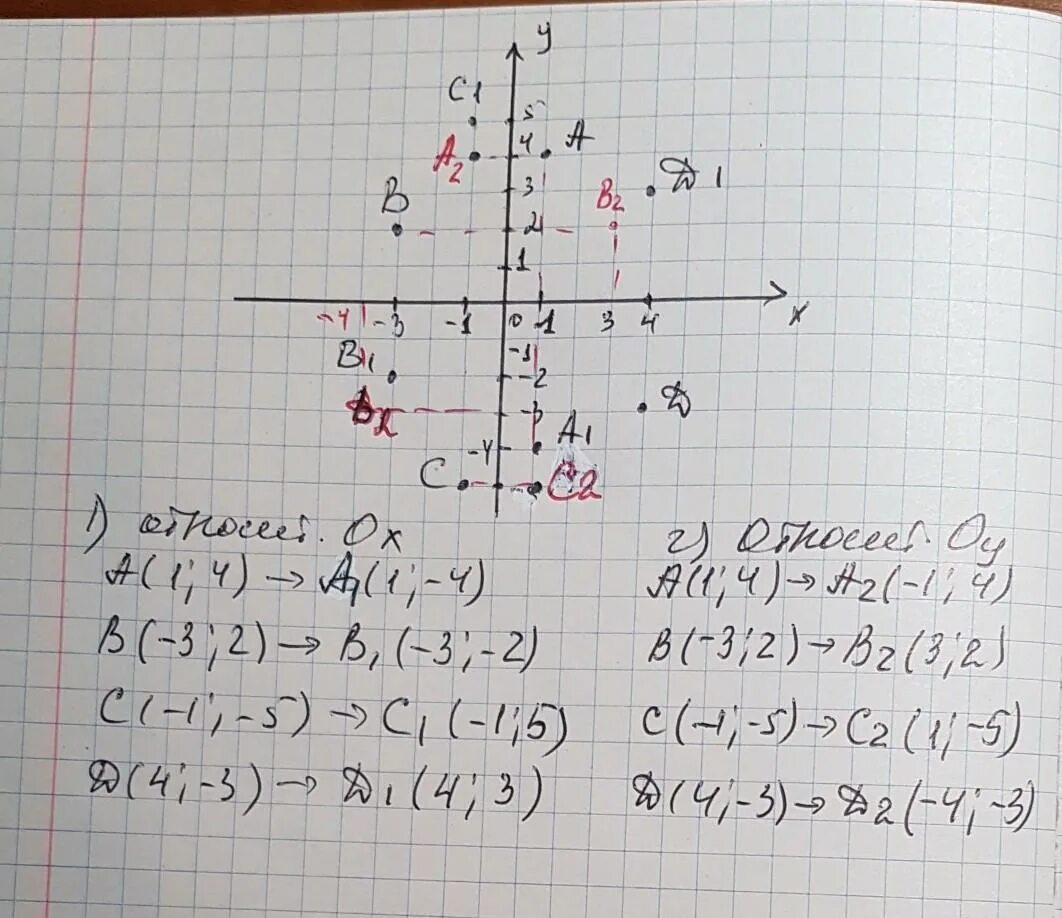 y
C1
5
A2 4 A
3 Д1
B B2
2
1
-4 -3 -1 0 1 3 4 x
-1
B1 -2
-3 Д
-4 A1
C C2
1) относит. Ox
A(1; 4) → A1(1; -4)
B(-3; 2) → B1(-3; -2)
C(-1; -5) → C1(-1; 5)
Д(4; -3) → Д1(4; 3)
2) Относит. Oy
A(1; 4) → A2(-1; 4)
B(-3; 2) → B2(3; 2)
C(-1; -5) → C2(1; -5)
Д(4; -3) → Д2(-4; -3)